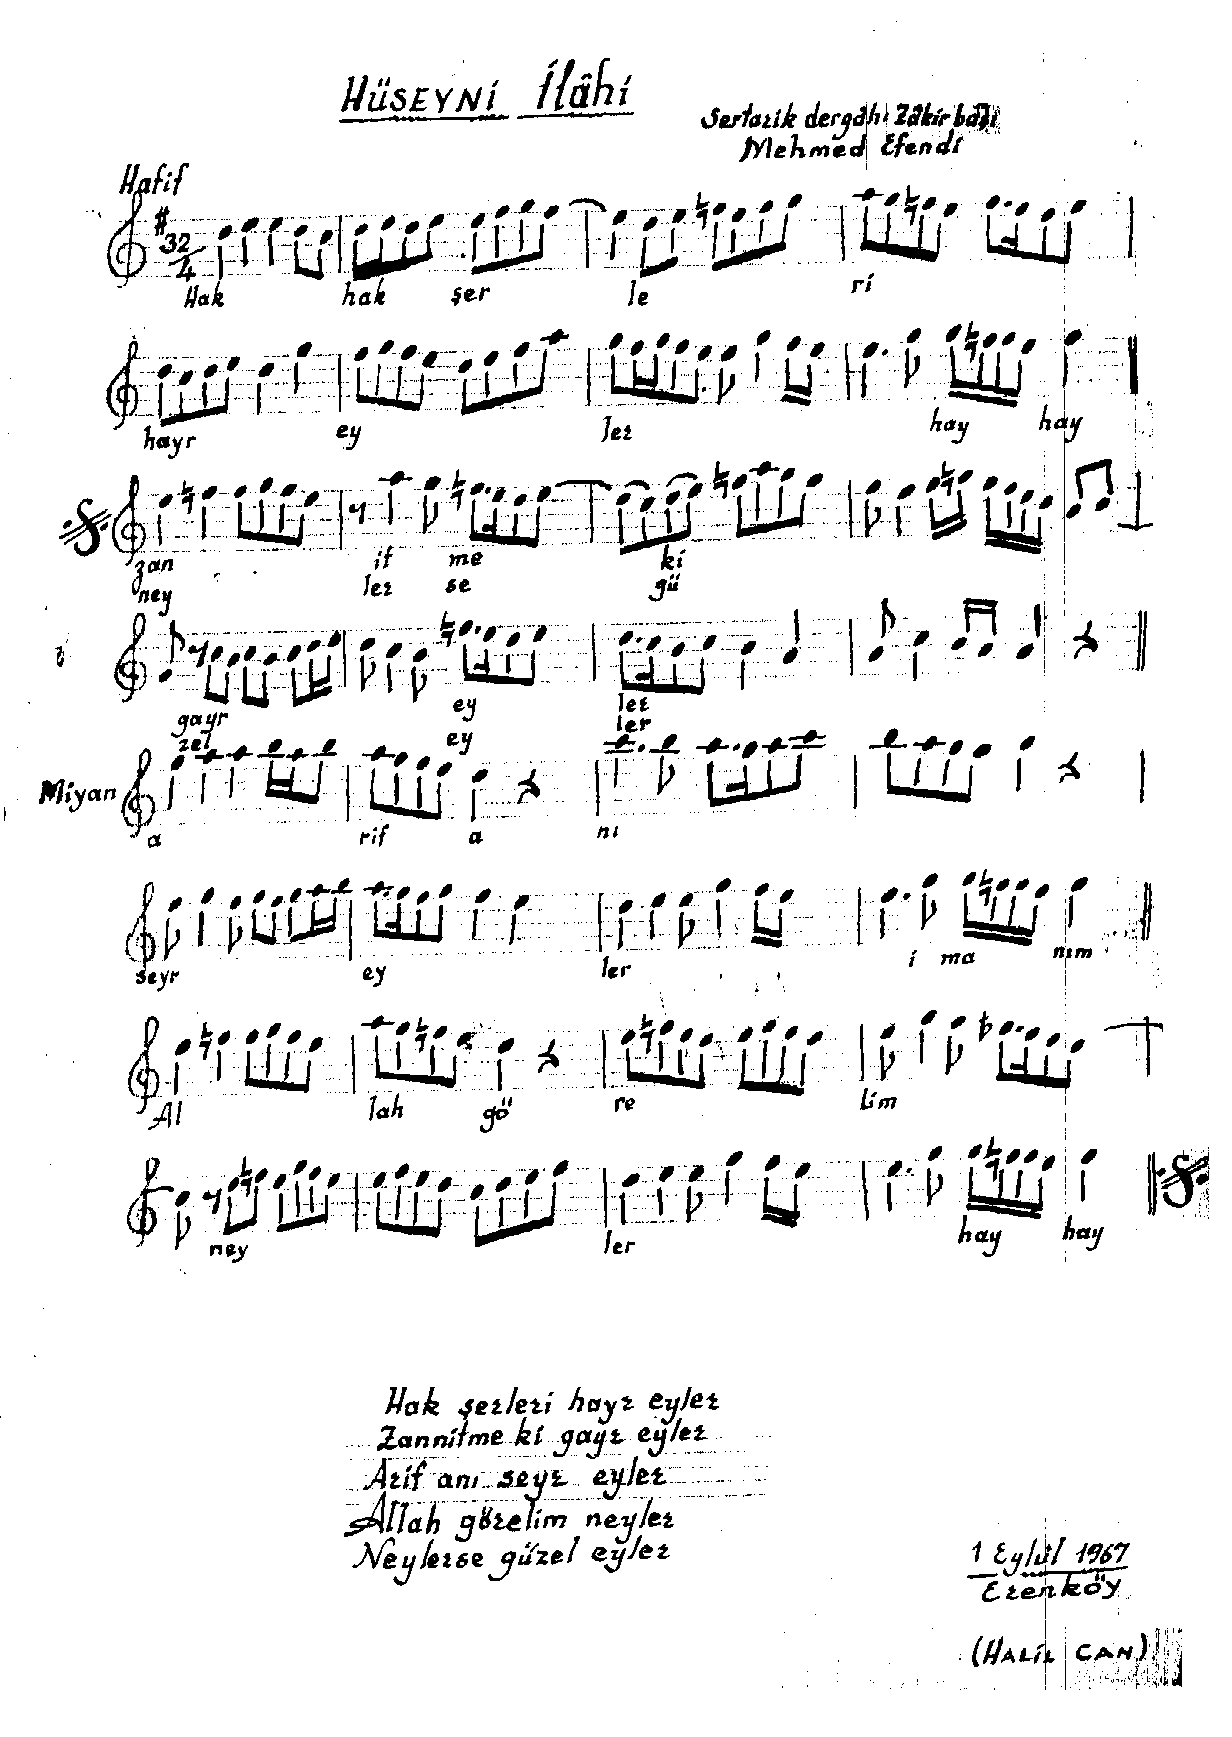 HÜSEYNİ İlâhi
Sertarik dergâhı Zâkir başı
Mehmed Efendi
Hafif
32
4
Hak hak şer le ri
hayr ey ler hay hay
zan it me ki
ney ler se gü
gayr ey ler
zel ey ler
Miyan
a rif a nı
seyr ey ler i ma nım
Al lah gö re lim
ney ler hay hay
Hak şerleri hayr eyler
Zannitme ki gayr eyler
Arif anı seyr eyler
Allah görelim neyler
Neylerse güzel eyler
1 Eylül 1967
Erenköy
(HALİL CAN)